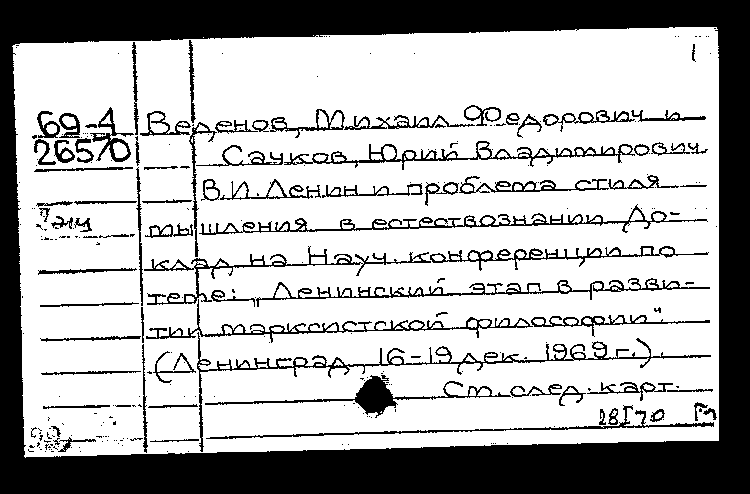 1
69-4 Веденов, Михаил Федорович и
26570 Сачков, Юрий Владимирович.
В.И. Ленин и проблема стиля
мышления в естествознании До-
клад на Науч. конференции по
теме: „Ленинский этап в разви-
тии марксистской философии".
(Ленинград, 16-19 дек. 1969 г.).
См. след. карт.
28 I 70